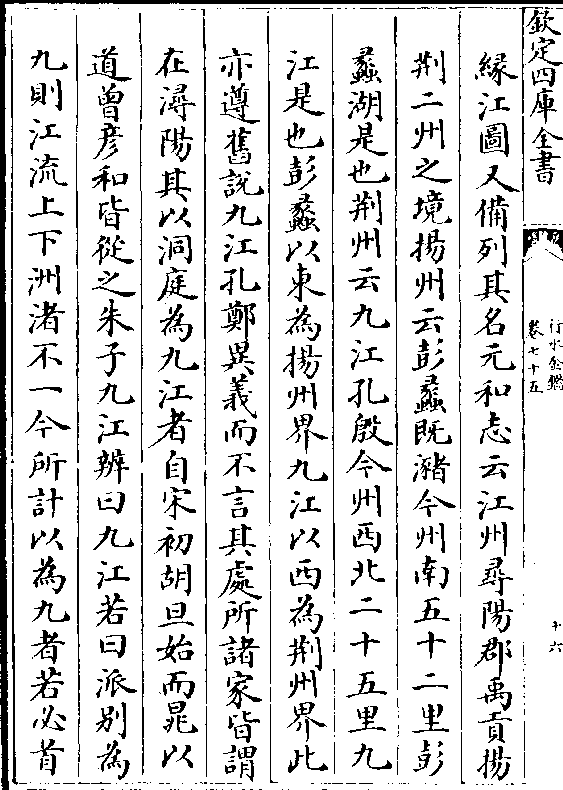 欽定四庫全書
行水金鑑
卷七十五
十六
緣江圖又備列其名元和志云江州尋陽郡禹貢揚
荆二州之境揚州云彭蠡既瀦今州南五十二里彭
蠡湖是也荆州云九江孔殷今州西北二十五里九
江是也彭蠡以東為揚州界九江以西為荆州界此
亦遵舊說九江孔鄭異義而不言其處所諸家皆謂
在潯陽其以洞庭為九江者自宋初胡旦始而晁以
道曾彦和皆從之朱子九江辨曰九江若曰派别為
九則江流上下洲渚不一今所計以為九者若必首